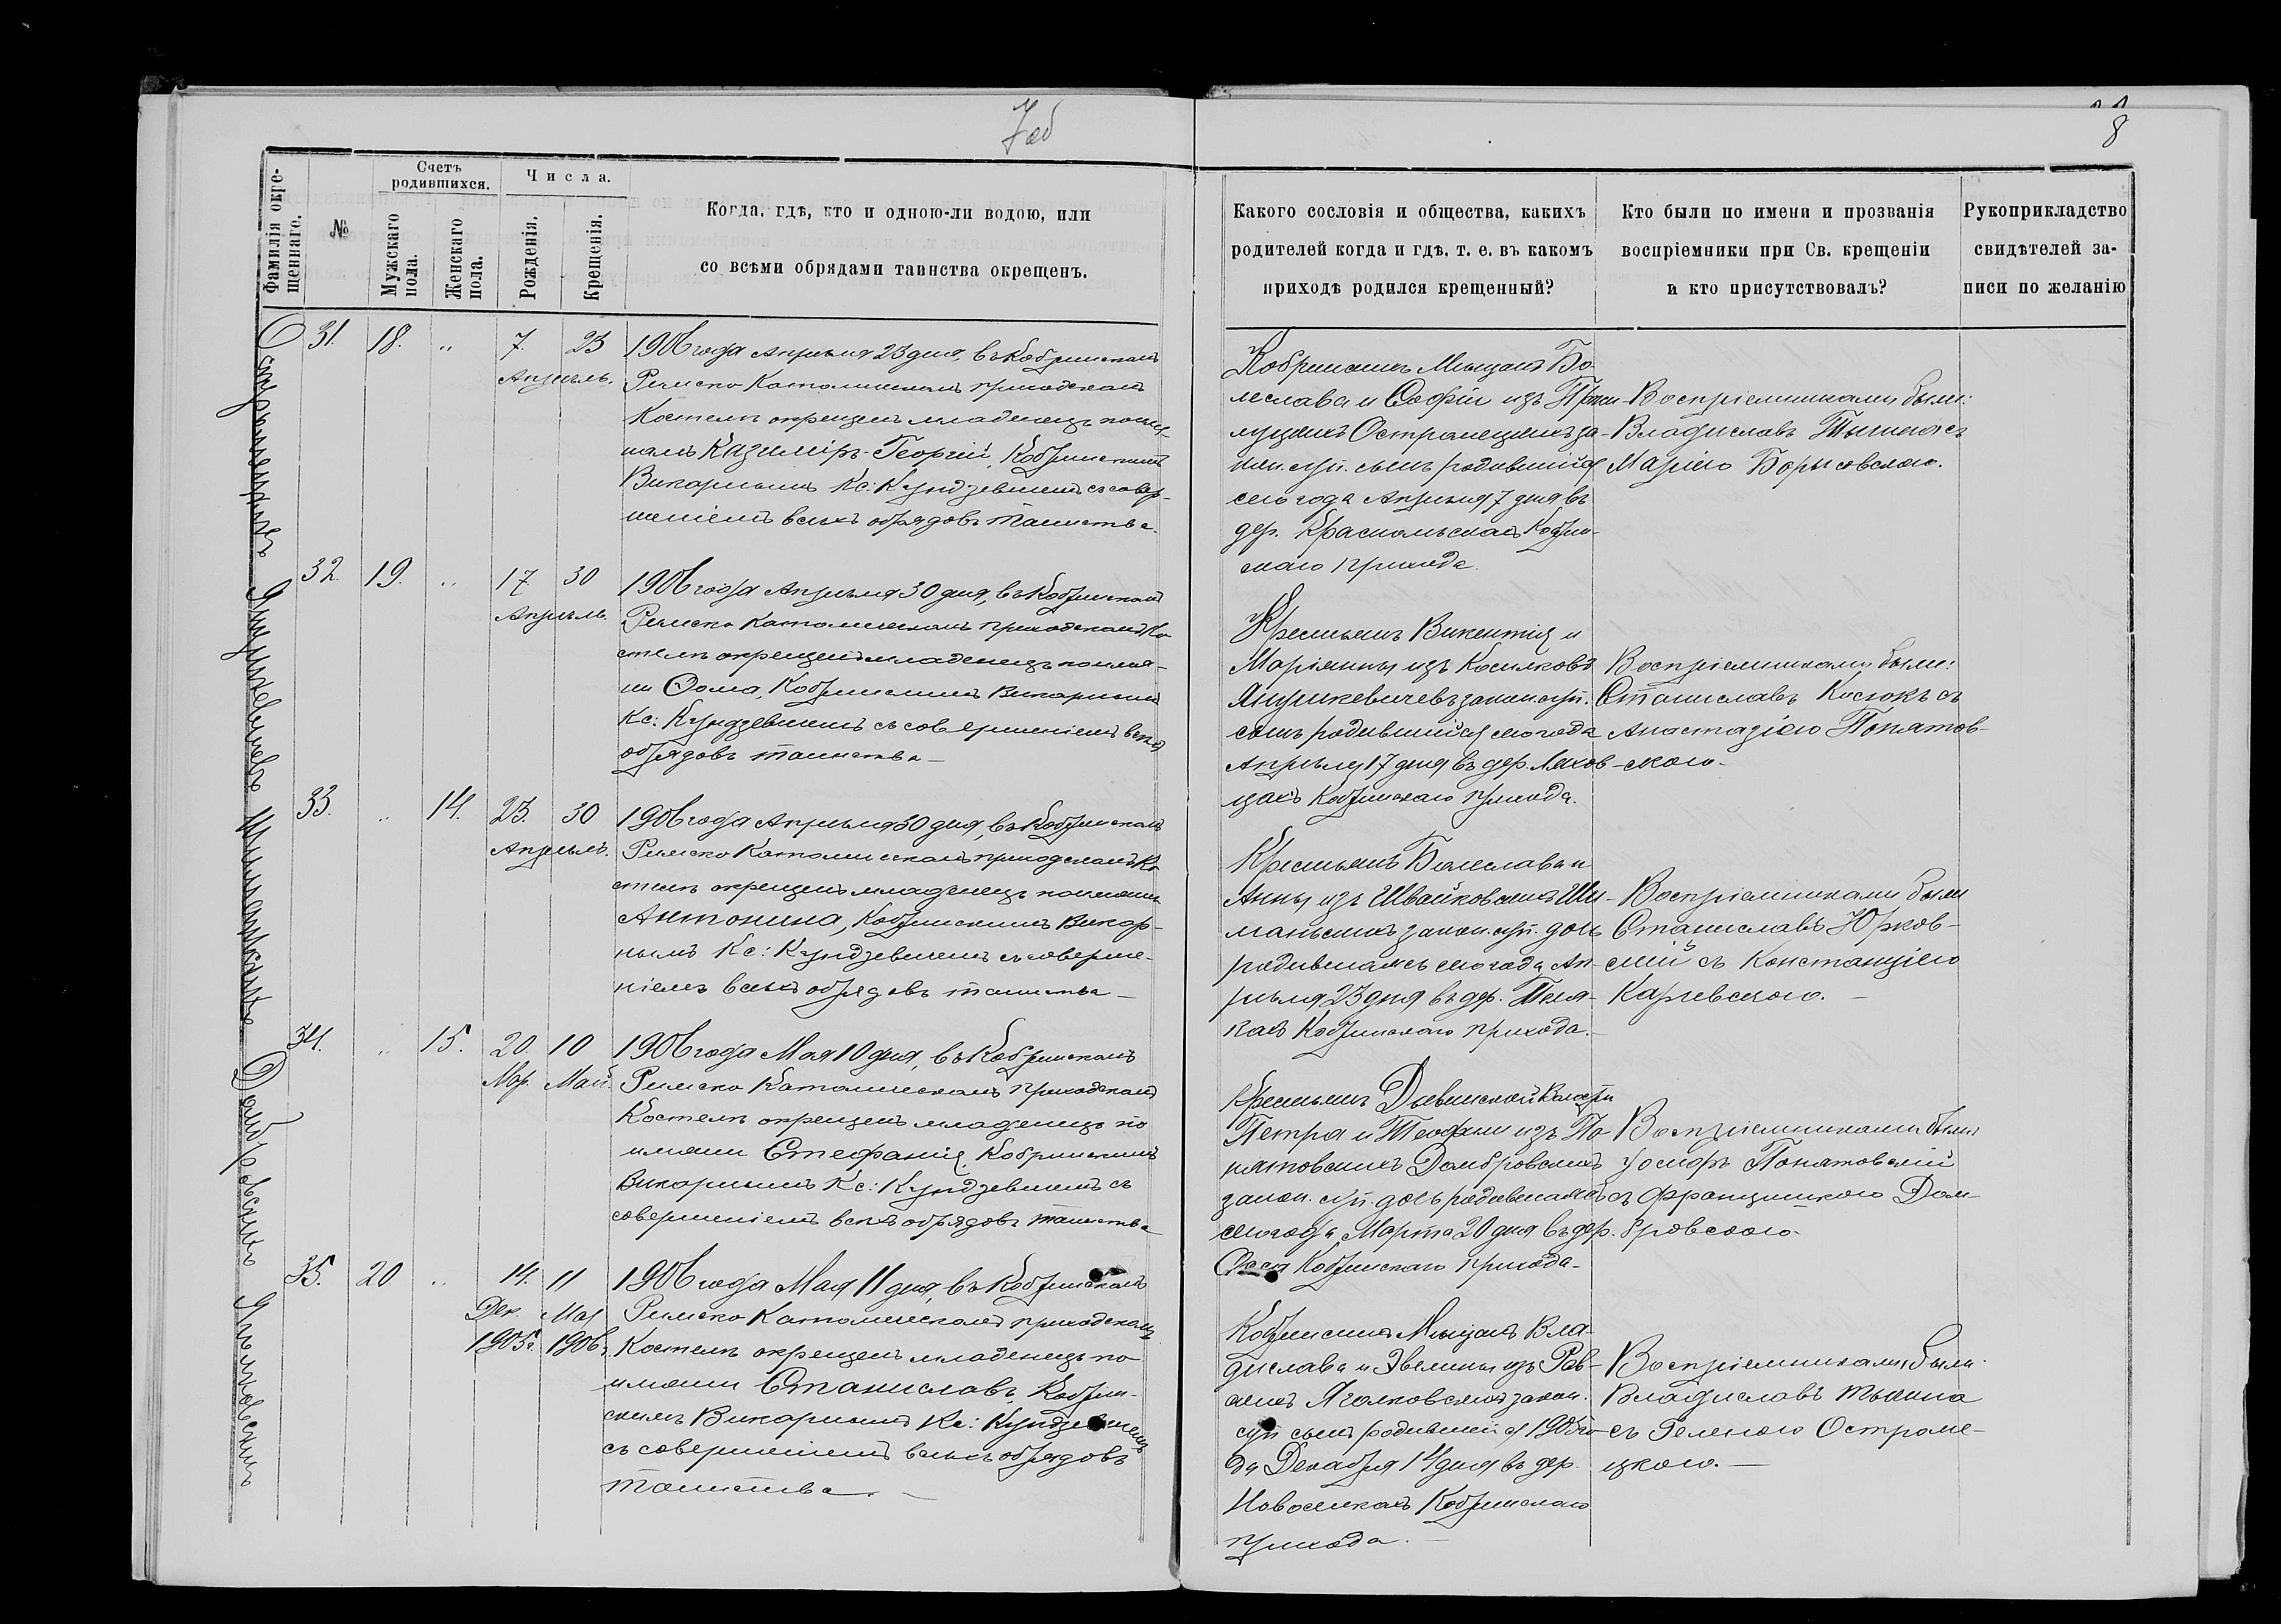 7об
8
Фамилія окре-
щеннаго.
№
Счетъ
родившихся.
Мужскаго
пола.
Женскаго
пола.
Числа.
Рожденія.
Крещенія.
Когда, гдѣ, кто и одною-ли водою, или
со всѣми обрядами таинства окрещенъ.
Какого сословія и общества, какихъ
родителей когда и гдѣ, т. е. въ какомъ
приходѣ родился крещенный?
Кто были по имени и прозванія
воспріемники при Св. крещеніи
и кто присутствовалъ?
Рукоприкладство
свидѣтелей за-
писи по желанію
31. 18. „ 7. 23
Апрѣль.
1906 года Апрѣля 23 дня, въ Кобринскомъ
Римско Католическомъ приходскомъ
Костелѣ окрещенъ младенецъ по име-
намъ Казиміръ-Георгій, Кобринскимъ
Викарнымъ Кс: Кундзевичемъ съ совер-
шеніемъ всѣхъ обрядовъ таинства.
Кобринскихъ Мѣщанъ Бо-
леслава и Софіи изъ
Остромецкихъ за-
кон. суп. сынъ родившійся
сего года Апрѣля 7 дня въ
дер. Кобрин-
скаго прихода.
Воспріемниками были:
Владиславъ съ
Маріею Борисовскою.
Янушкевичъ
32. 19. „ 17 30
Апрѣль.
1906 года Апрѣля 30 дня, въ Кобринскомъ
Римско Католическомъ приходскомъ Ко-
стелѣ окрещенъ младенецъ по име-
ни Ѳома, Кобринскимъ Викарнымъ
Кс: Кундзевичемъ съ совершеніемъ всѣхъ
обрядовъ таинства —
Крестьянъ Викентія и
Маріанны изъ
Янушкевичевъ закон. суп.
сынъ родившійся сего года
Апрѣля 17 дня въ дер. Ляхов-
цахъ Кобринскаго прихода.
Воспріемниками были:
Станиславъ Костюкъ съ
Анастазіею Понятов-
скою.
33. „ 14. 23. 30
Апрѣль.
1906 года Апрѣля 30 дня, въ Кобринскомъ
Римско Католическомъ приходскомъ Ко-
стелѣ окрещенъ младенецъ по имени
Антонина, Кобринскимъ Викар-
нымъ Кс: Кундзевичемъ съ соверше-
ніемъ всѣхъ обрядовъ таинства —
Крестьянъ Болеслава и
Анны изъ Швайковскихъ Ши-
манскихъ закон. суп. дочь
родившаяся сего года Ап-
рѣля 23 дня въ дер.
Кобринскаго прихода.
Воспріемниками были
Станиславъ Юрков-
скій съ Констанціею
Карчевскою. —
34. „ 15. 20. 10
Мар. Май.
1906 года Мая 10 дня, въ Кобринскомъ
Римско Католическомъ приходскомъ
Костелѣ окрещенъ младенецъ по
имени Стефанія, Кобринскимъ
Викарнымъ Кс: Кундзевичемъ съ
совершеніемъ всѣхъ обрядовъ таинства
Крестьянъ Дывинской Волости
Петра и Теофили изъ По-
нятовскихъ Домбровскихъ
закон. суп. дочь родившаяся
сего года Марта 20 дня въ дер.
Кобринскаго прихода —
Воспріемниками были
Іосифъ Понятовскій
съ Францишкою Дом-
бровскою.
35. 20 „ 14. 11
Дек. Мая
1905 г. 1906 г.
1906 года Мая 11 дня, въ Кобринскомъ
Римско Католическомъ приходскомъ
Костелѣ окрещенъ младенецъ по
имени Станиславъ, Кобрин-
скимъ Викарнымъ Кс: Кундзевичемъ
съ совершеніемъ всѣхъ обрядовъ
таинства. —
Кобринскихъ Мѣщанъ Вла-
дислава и Эвелины изъ Рав-
скихъ закон.
суп сынъ родившійся 1905 го-
да Декабря 14 дня въ дер.
Новоселкахъ Кобринскаго
прихода. —
Воспріемниками были
Владиславъ
съ Геленою Остроме-
цкою. —